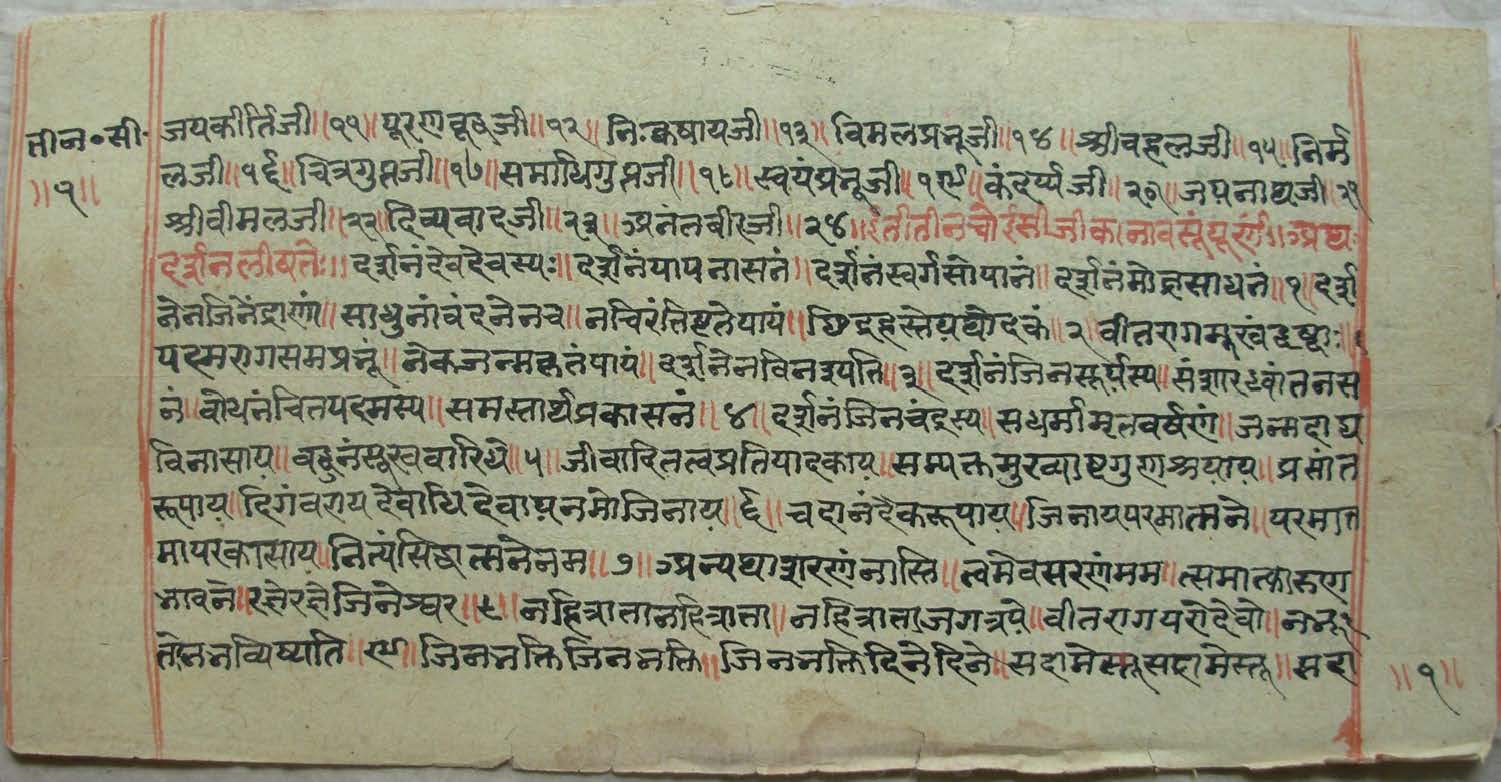 तीन॰सी॰
॥१॥
जयकीर्तिजी॥११॥पूरणबूधजी॥१२॥निःकषायजी॥१३॥विमलप्रभूजी॥१४॥श्रीवहलजी॥१५॥निर्म
लजी॥१६॥चित्रगुप्तजी॥१७॥समाधिगुप्तजी॥१८॥स्वयंप्रभूजी॥१९॥कंदर्प्पजी॥२०॥जयनाथजी॥२१
श्रीवीमलजी॥२२॥दिव्यवादजी॥२३॥अनंतवीरजी॥२४॥इतीतीनचौईसीजीकानावसंपूरणं॥अथ
दर्शनलीष्यते॥दर्शनंदेवदेवस्यः॥दर्शनंपापनासनं॥दर्शनंस्वर्गसोपानं॥दर्शनंमोक्षसाधनं॥१॥दर्श
नेनजिनेंद्राणां॥साधुनांवंदनेनच॥नचिरंतिष्टतेपापं॥छिद्रहस्तेयथोदकं॥२॥वीतरागमुखंदृष्ट्वाः॥
पदमरागसमप्रभूं॥नेकजन्मकृतंपापं॥दर्शनेनविनश्यति॥३॥दर्शनंजिनसूर्यस्य॥संशारध्वांतनस
नं॥वोधनंचितपदमस्य॥समस्तार्थप्रकासनं॥४॥दर्शनंजिनचंद्रस्य॥सधर्मामृतवर्षणं॥जन्मदाघ
विनासाय॥वर्द्धनंसूखवारिधे॥५॥जीवादितत्वप्रतिपादकाय॥सम्यक्तमुख्याष्टगुणाश्रयाय॥प्रसांत
रूपाय॥दिगंवरायदेवाधिदेवायनमोजिनाय॥६॥चदानंदैकरूपाय॥जिनायपरमात्मने॥परमात
मापरकासाय॥नित्यंसिद्धात्मनेनम॥७॥अन्यथाशरणंनास्ति॥त्वमेवसरणंमम॥त्समात्कारुण
भावने॥रक्षेरक्षेजिनेश्वर॥८॥नहित्रातानहित्राता॥नहित्राताजगत्रये॥वीतरागपरोदेवो॥नभू
तोनभविष्यति॥९॥जिनभक्तिजिनभक्ति॥जिनभक्तिदिनेदिने॥सदामेस्तूसदामेस्तू॥सदा
॥१॥